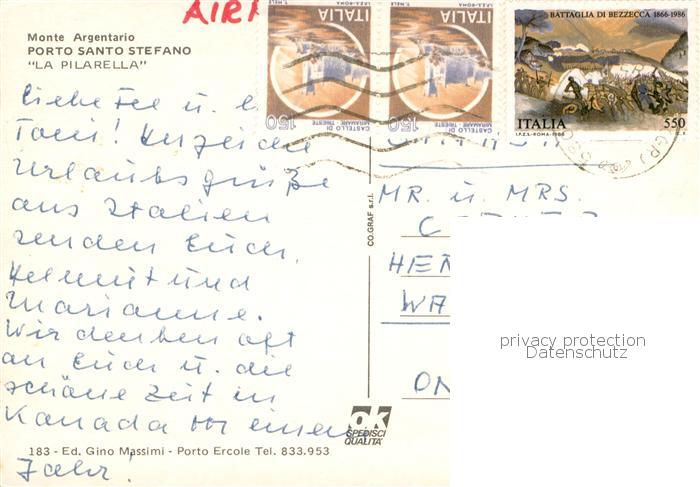 AIR
Monte Argentario
PORTO SANTO STEFANO
"LA PILARELLA"
Liebe Fee u.
Toni! Herzliche
Urlaubsgrüße
aus Italien
senden Euch,
Helmut und
Marianne.
Wir denken oft
an Euch u. die
schöne Zeit in
Kanada vor einem
Jahr!
183 - Ed. Gino Massimi - Porto Ercole Tel. 833.953
CO.GRAF s.r.l.
ok
SPEDISCI
QUALITA'
ITALIA
I.P.Z.S.-ROMA T. MELE
150
CASTELLO DI
MIRAMARE-TRIESTE
ITALIA
I.P.Z.S.-ROMA T. MELE
150
CASTELLO DI
MIRAMARE-TRIESTE
BATTAGLIA DI BEZZECCA 1866-1986
ITALIA 550
I.P.Z.S.-ROMA-1986
MR. u. MRS.
C
HE
WA
ON
privacy protection
Datenschutz